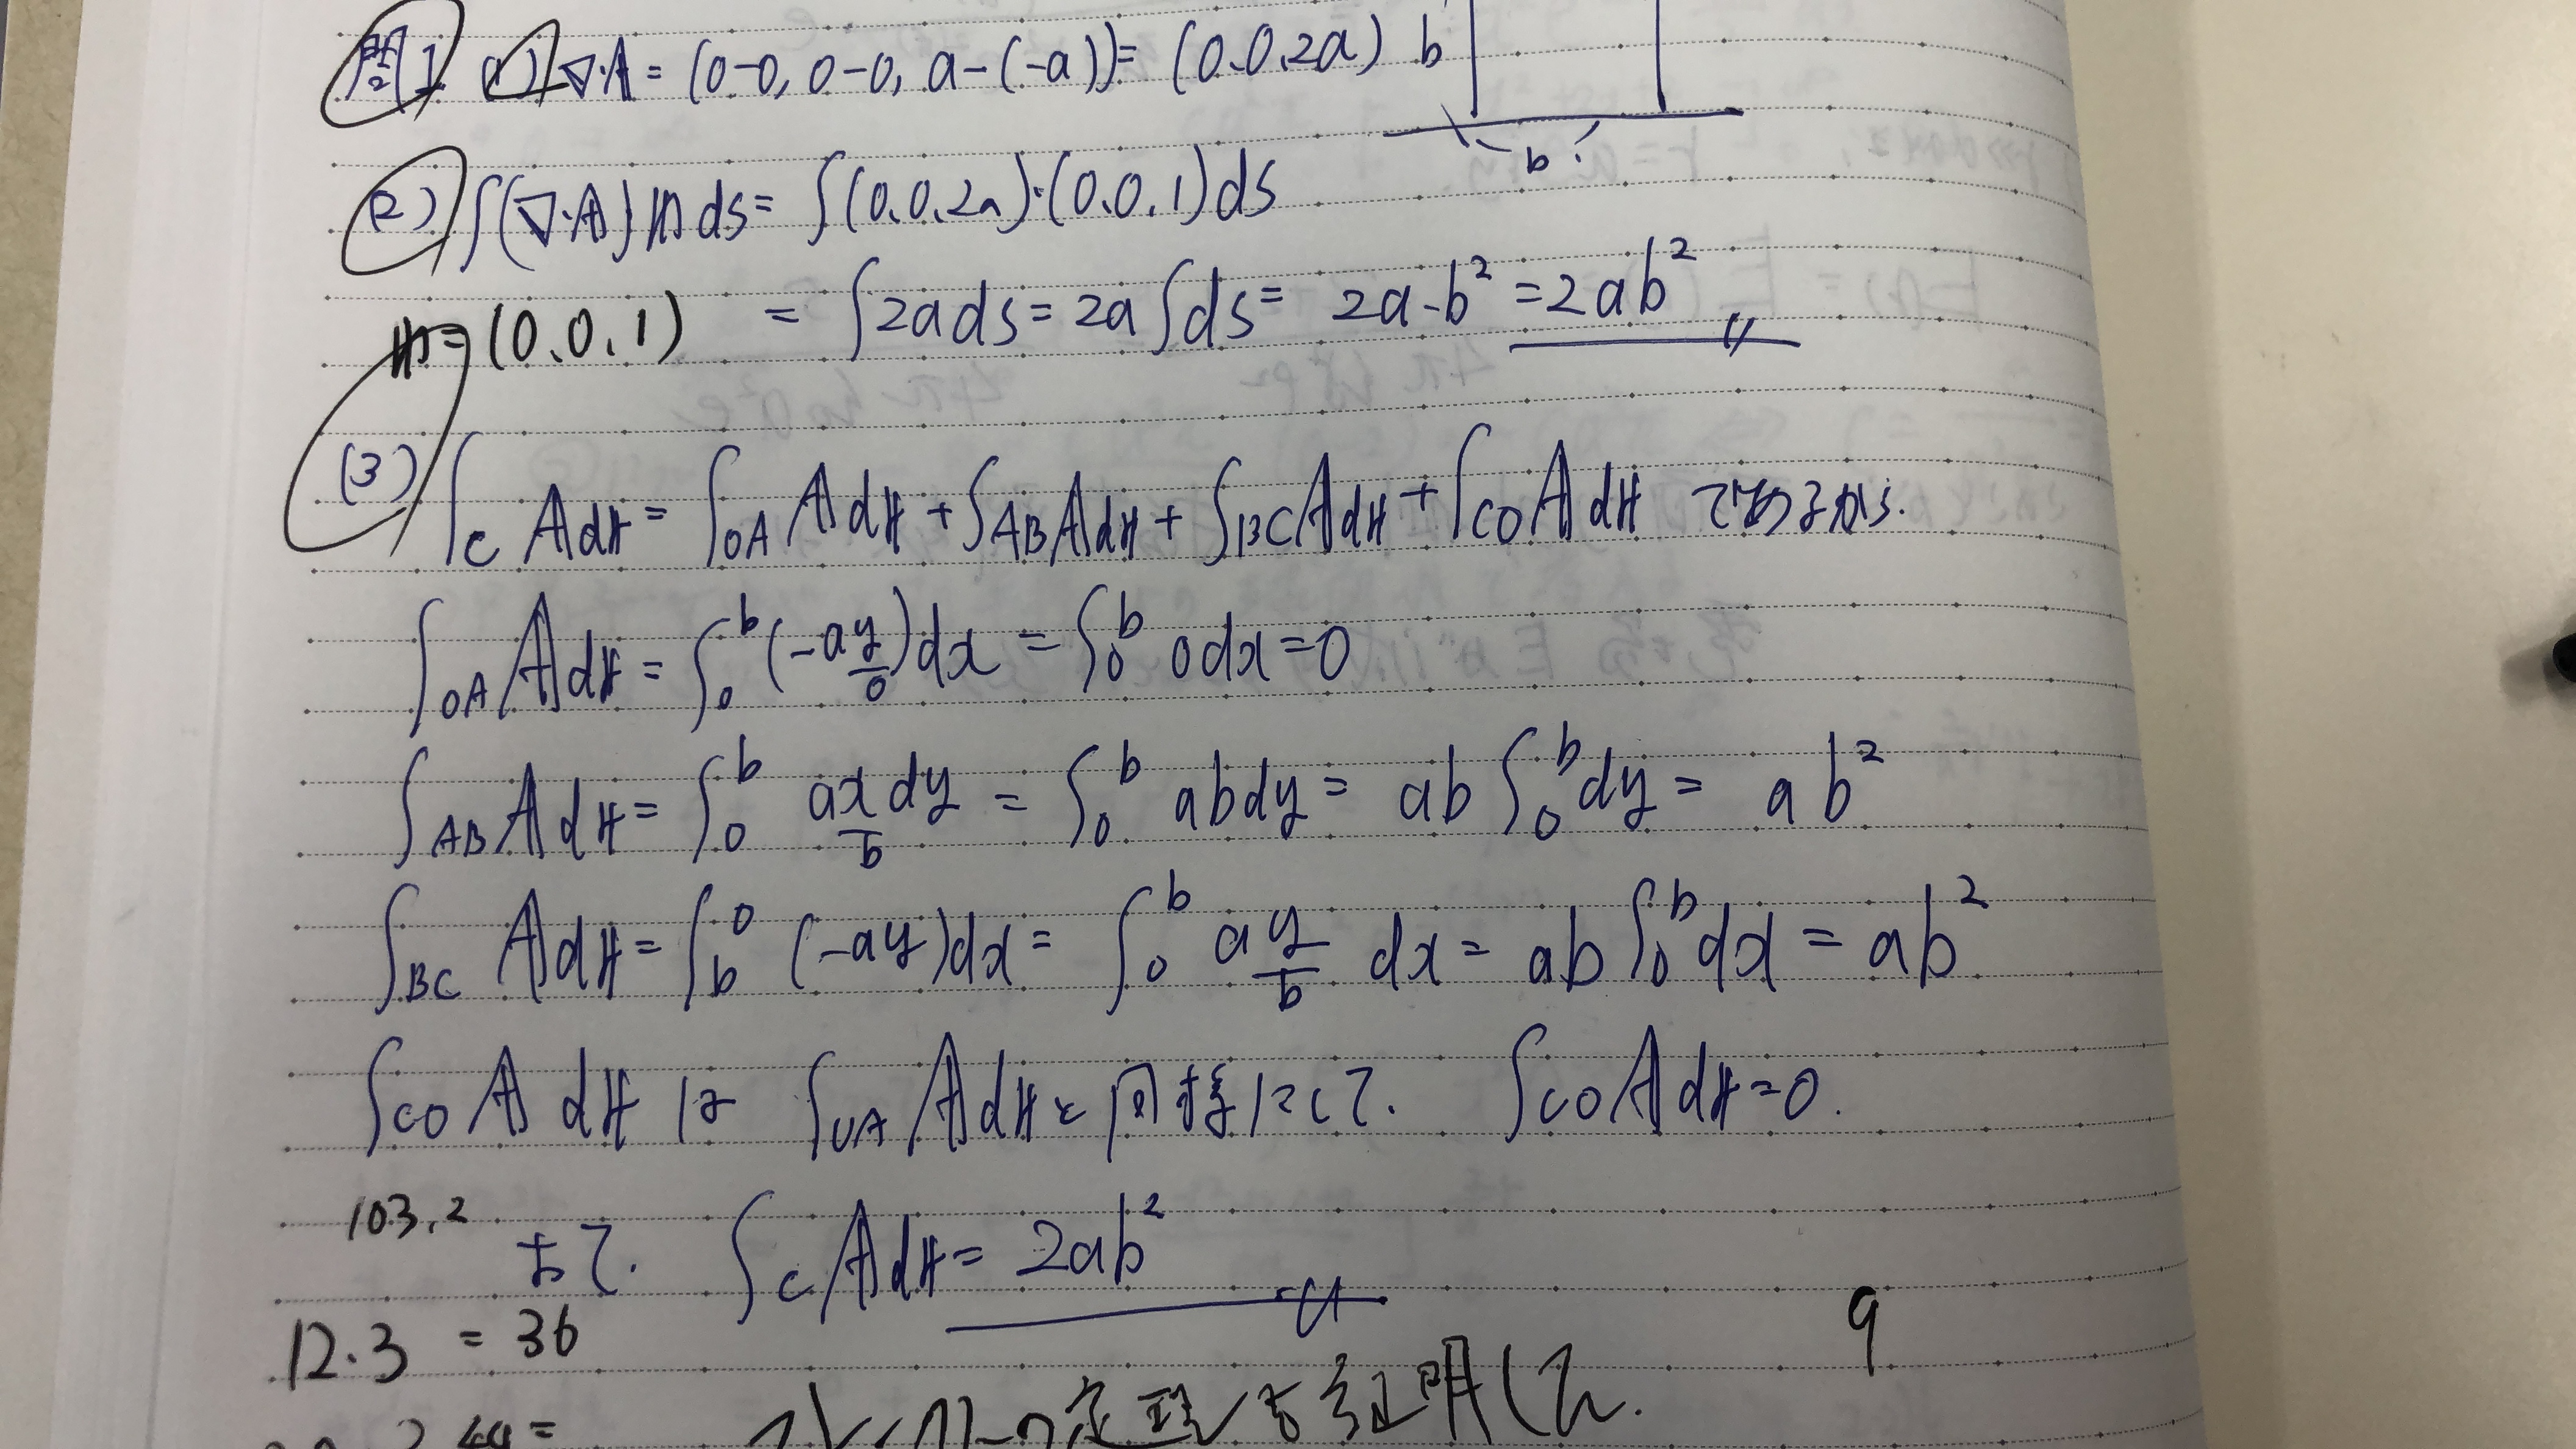 問1 (1) ∇·A = (0-0, 0-0, a-(-a)) = (0.0.2a) b
b
(2) ∫(∇·A) n ds = ∫(0.0.2a)·(0.0.1)ds
n=(0.0.1) = ∫2ads = 2a∫ds = 2a·b² = 2ab²
(3) ∫c Adr = ∫OA Adr + ∫AB Adr + ∫BC Adr + ∫CO Adr であるから.
∫OA Adr = ∫₀ᵇ (-ay)dx = ∫₀ᵇ 0dx = 0
0
∫AB Adr = ∫₀ᵇ axdy = ∫₀ᵇ abdy = ab∫₀ᵇ dy = ab²
b
∫BC Adr = ∫b⁰ (-ay)dx = ∫₀ᵇ ay dx = ab∫₀ᵇ dx = ab²
b
∫CO Adr は ∫OA Adr と同様にして. ∫CO Adr = 0.
103.2
よって. ∫c Adr = 2ab²
12.3 = 36
9
定理を証明して.